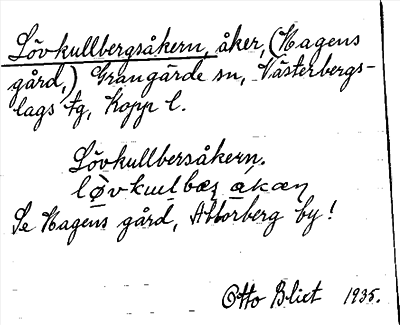 Lövkullbergsåkern, åker, (Hagens
gård,) Grangärde sn, Västerbergs-
lags tg, Kopp l.
Lövkullbersåkern.
Se Hagens gård, Abborberg by!
Otto Blixt 1935.